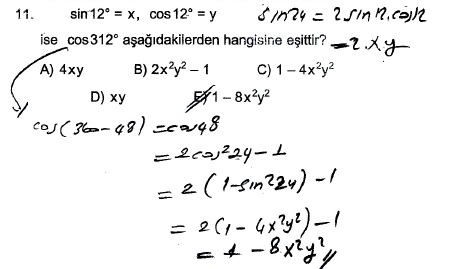 11. sin12° = x, cos12° = y
sin24 = 2sin12.cos12
ise cos312° aşağıdakilerden hangisine eşittir?
= 2.xy
A) 4xy B) 2x²y² – 1 C) 1 – 4x²y²
D) xy E) 1 – 8x²y²
cos(360-48) = cos48
= 2cos²24-1
= 2(1-sin²24)-1
= 2(1-4x²y²)-1
= 1 - 8x²y²